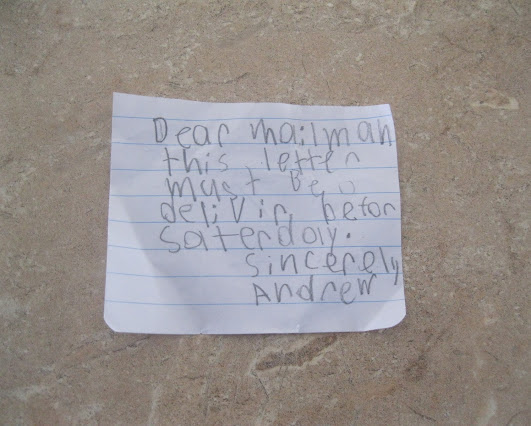 Dear mailman
this letter
must Be
delivir befor
saterday.
sincerely
Andrew